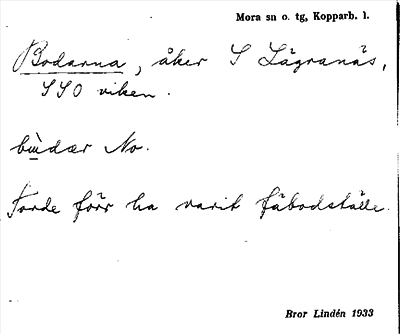 Mora sn o. tg, Kopparb. l.
Bodarna, åker S Lågranäs,
SSO viken.
bùdær No.
Torde förr ha varit fäbodställe.
Bror Lindén 1933